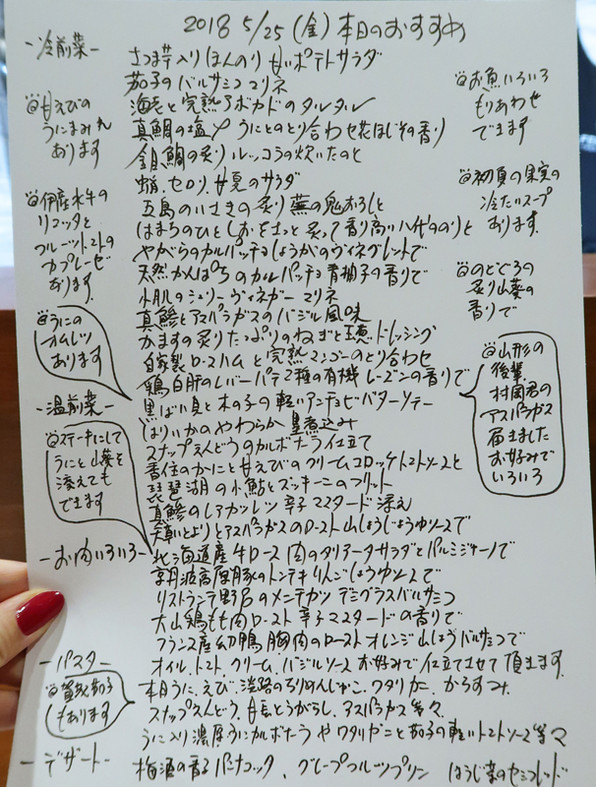 2018 5/25 (金) 本日のおすすめ
-冷前菜-
さつま芋入りほんのり甘いポテトサラダ
茄子のバルサミコマリネ
海老と完熟アボカドのタルタル
真鯛の塩〆うにとのとり合わせ花ほじその香り
金目鯛の炙り ルッコラの炊いたのと
蛸、セロリ、甘夏のサラダ
五島のいさきの炙り 蕪の鬼おろしと
はまちのひとしおをさっと炙って香り高い八代のりと
やがらのカルパッチョしょうがのヴィネグレットで
天然かんぱちのカルパッチョ青柚子の香りで
小肌のシェリーヴィネガーマリネ
真鯵とアスパラガスのバジル風味
かますの炙りたっぷりのねぎと玉葱ドレッシング
自家製ロースハムと完熟マンゴーのとり合わせ
鶏白肝のレバーパテ2種の有機レーズンの香りで
◎甘えびの
うにまみれ
あります
◎伊産水牛の
リコッタと
フルーツトマトの
カプレーゼ
あります
◎うにの
オムレツ
あります
◎お魚いろいろ
もりあわせ
できます
◎初夏の果実の
冷たいスープ
あります。
◎のどぐろの
炙り山葵の
香りで
-温前菜-
黒ばい貝と木の子の軽いアンチョビバターソテー
はりいかのやわらか 煮込み
スナップえんどうのカルボナーラ仕立て
香住のかにと甘えびのクリームコロッケトマトソースと
琵琶湖の小鮎とズッキーニのフリット
真鯵のレアカツレツ 辛子マスタード添え
天草いとよりとアスパラガスのロースト山しょうじょうゆソースで
◎ステーキにして
うにと山葵を
添えても
できます
◎山形の
後輩
村岡君の
アスパラガス
届きました
お好みで
いろいろ
-お肉いろいろ-
北海道産牛ロース肉のタリアータサラダとパルミジャーノで
京丹波高原豚のトンテキりんごしょうゆソースで
リストランテ野呂のメンチカツ デミグラスバルサミコ
大山鶏もも肉ロースト 辛子マスタードの香りで
フランス産幼鴨胸肉のロースト オレンジ山しょうバルサミコで
-パスタ-
オイル、トマト、クリーム、バジルソース お好みで仕立てさせて頂きます。
本日うに、えび、淡路のちりめんじゃこ、ワタリガニ、からすみ、
スナップえんどう、甘長とうがらし、アスパラガス等々
うに入り濃厚うにカルボナーラやワタリガニと茄子の軽いトマトソース等々
◎賀茂茄子
もあります
-デザート-
梅酒の香るパンナコッタ、グレープフルーツプリン ほうじ茶のセミフレッド